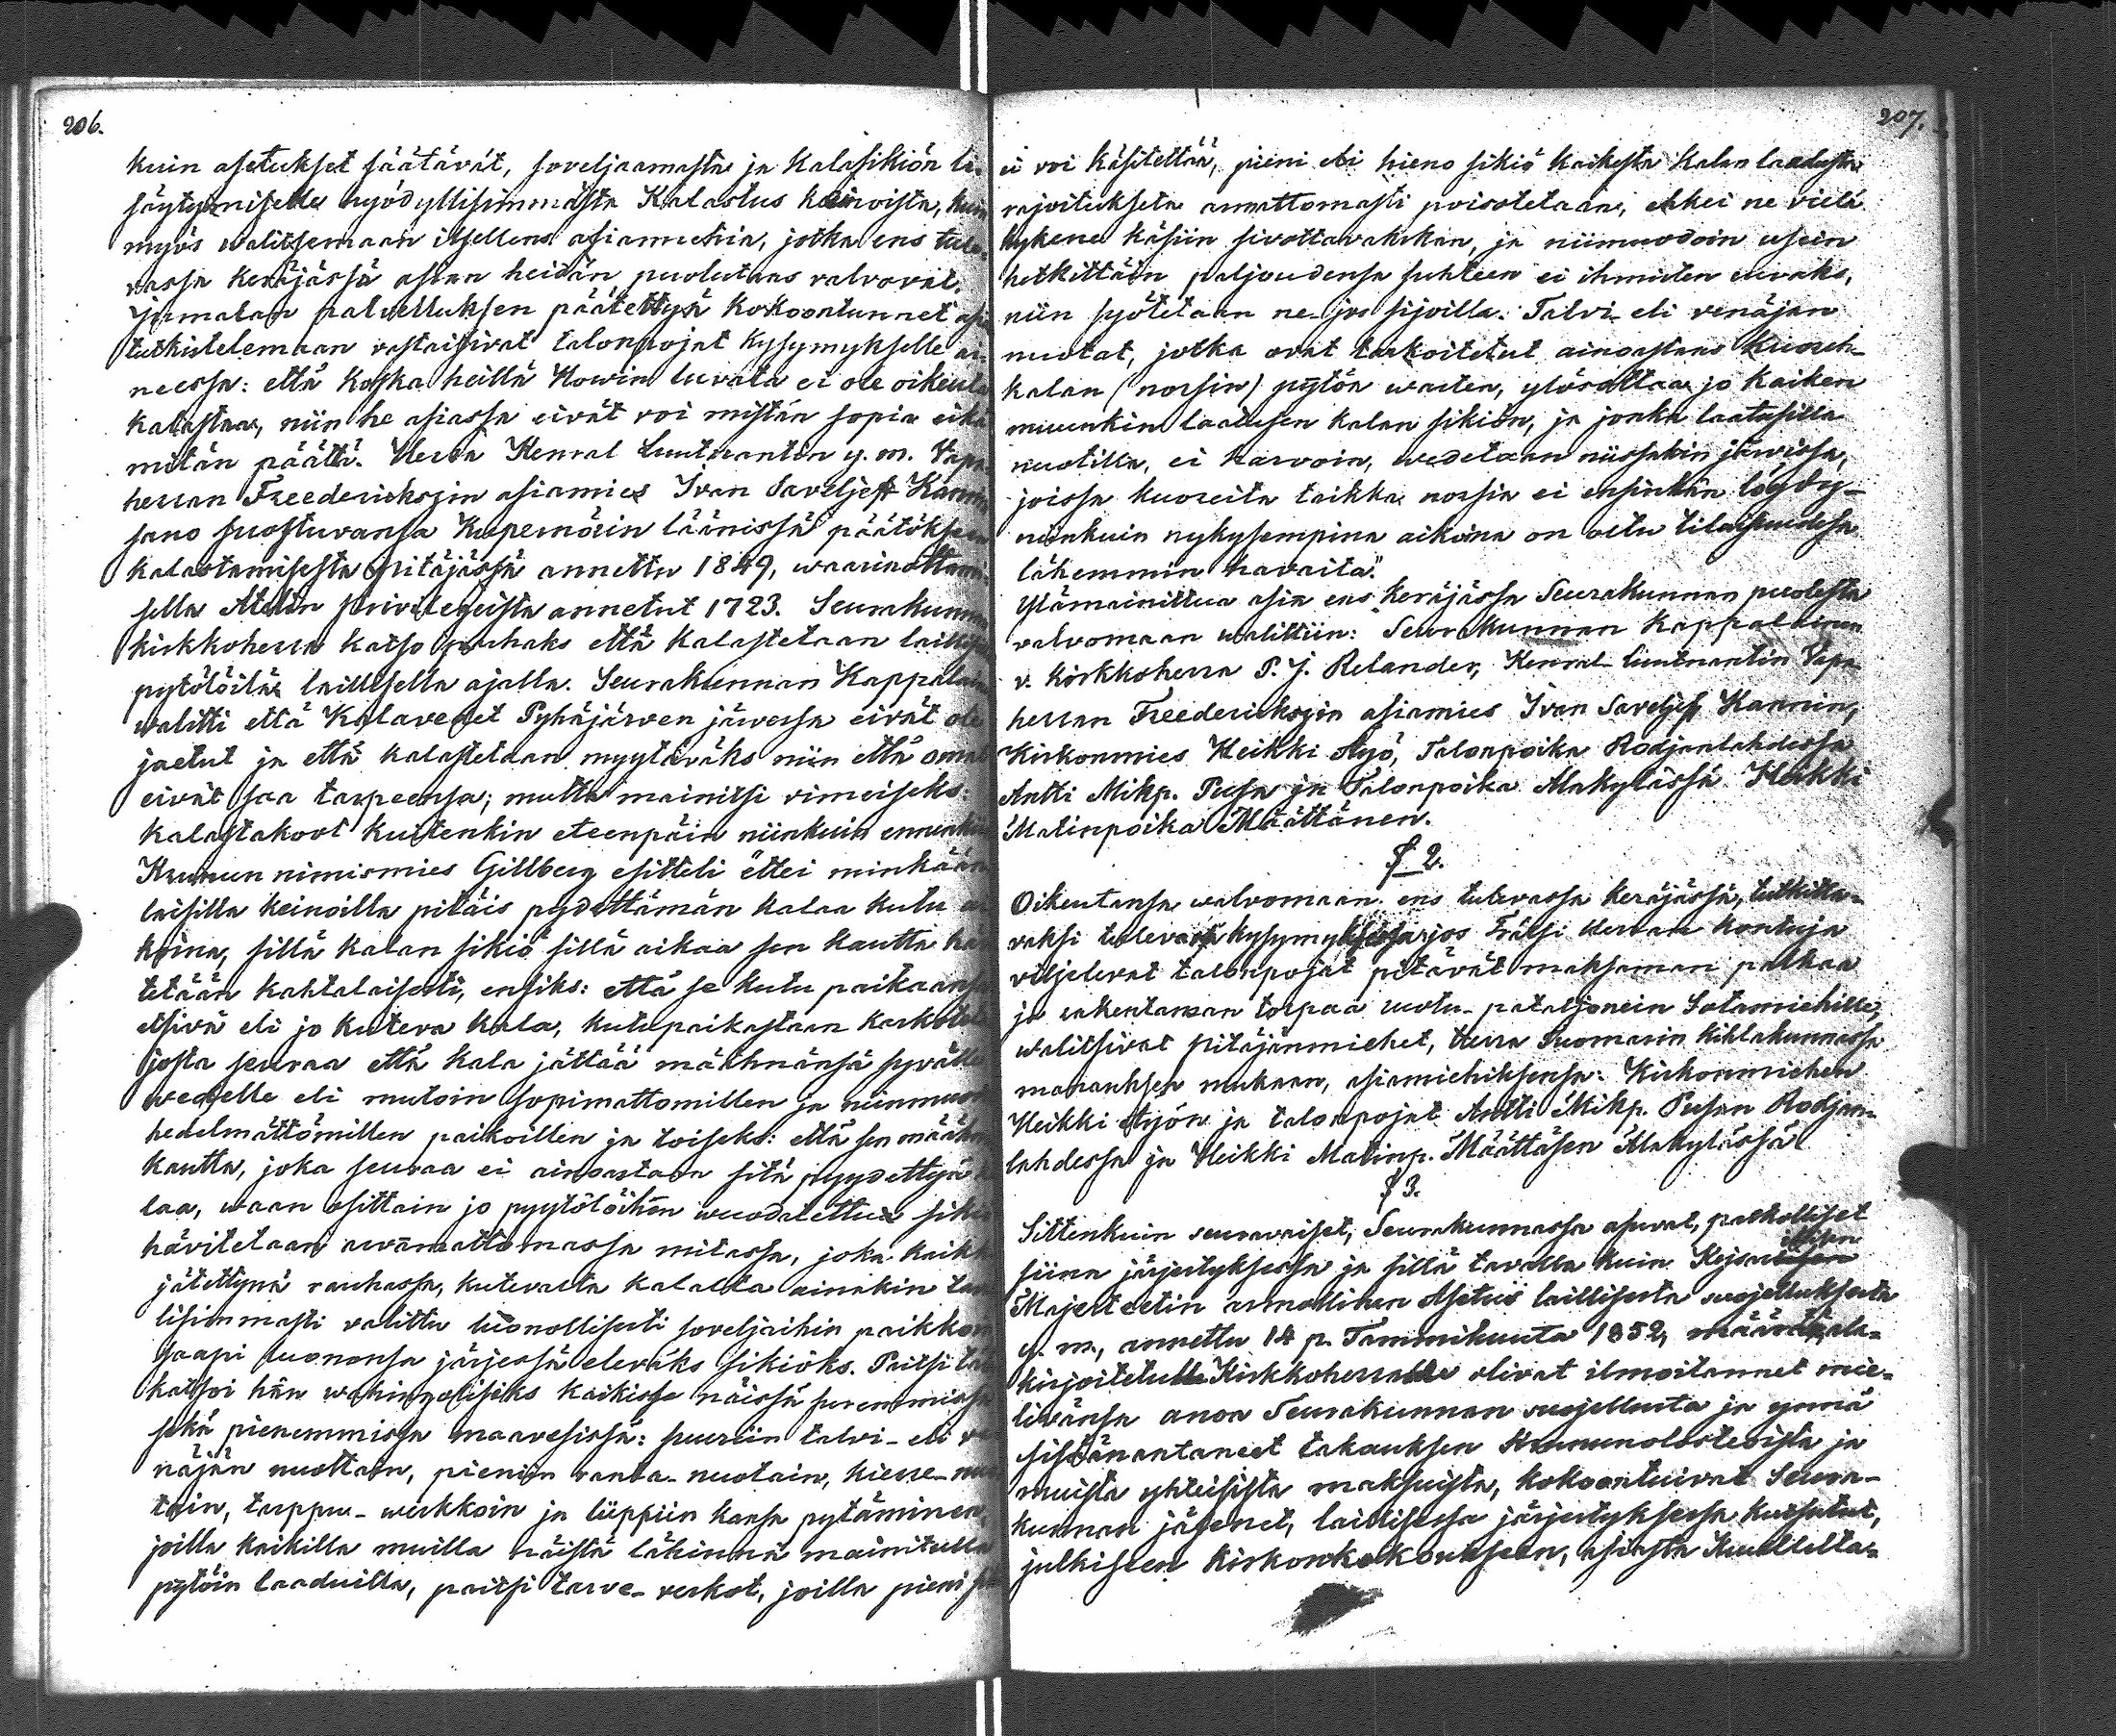 206.
kuin asetukset säätävät, soveljaamasta ja kalasikiön li-
säytymiselle hyödyllisimmästä Kalastus keinoista, kuin
myös walitsemaan itsellens asiamiehiä, jotka ens tule-
vassa keräjässä asian heidän puolestans valvovat.
Jumalan palvelluksen päätettyä kokoontunnet asia
tutkistelemaan vastaisivat talonpojat kysymykselle ai-
neessa: että koska heillä Howin luvata ei ole oikeutta
kalastaa, niin he asiassa eivät voi mistän sopia eikä
mitän päättä. Herra Kenral Luutnantin y. m. Vapa-
herran Freedericksyin asiamies Ivan Saveljeff Kannin
sano suostuvansa Kupernörin läänissä päätöksen
kalastamisesta pitäjässä annettu 1849, waarinottami-
sella Atelin privilegeista annetut 1723. Seurakunnan
kirkkoherra katso parhaks että kalastetaan laillisilla
pytölöilä laillisella ajalla. Seurakunnan Kappalainen
walitti että Kalavedet Pyhäjärven järvessa eivät ole
jaetut ja että kalastetaan myytäväks niin että omat
eivät saa tarpeensa; mutta mainitsi vimeiseks:
Kalastakoot kuitenkin eteenpäin niinkuin ennenkin
Kruunun nimismies Gillberg esitteli "ettei minkään
laisilla keinoilla pitäis pydettämän kalaa kutu ai-
koina, sillä kalan sikiö sillä aikaa sen kautta hä-
tetään kahtalaisesti, ensiks: että se kutu paikaansa
etsivä eli jo kuteva kala, kutupaikastaan karkoitetaan
josta seuraa että kala jättää mäthnänsä syvälle
wedelle eli mutoin sopimattomillen ja niinmuodoin
hedelmättömillen paikoillen ja toiseks: että sen määhnän
kautta, joka seuraa ei ainoastaan sitä pyydettyä ka-
laa, waan osittain jo pyytölöihin wuodatettua sikiö
hävitetaan arvamattomassa mitassa, joka kaikki
jätettynä rauhassa, kutevalta kalalta ainakin
lisimmasti valittu luonollisesti soveljaihin paikkon
saapi luononsa järjessä eleväks sikiöks. Paitsi
katsoi hän wahingolisiks kaikissa näissä suremmissa
sekä pienemmissa maavesissä: suurein talvi- eli ve-
näjän nuottain, pieniin ranta-nuotain, kierre-nuo-
tain, tarppu-werkkoin ja lippiin kansa pytäminen,
joilla kaikilla muilla näistä läkinnä mainitulla
pytöin laaduilla, paitsi tarve-verkot, joilla pieni
207.
ei voi käsitettää, pieni eli hieno sikiö kaikesta kalan laadusta
rajoitukseta armattomasti poisotetaan, ehkei ne vielä
kykene käsiin sivottavakskan, ja niimuodoin usein
hetkittäin paljoudensa suhteen ei ihmisten ruvaks,
niin syötetaan ne jos sijoilla. Talvi- eli venäjän
nuotat, jotka ovat tarkoitetut ainoastans Kuoreh-
kalan (norsin) pytöä warten, ylösottaa jo kaiken
muunkin laatusen kalan sikiön, ja jonka laatusilla
nuotilla, ei harvoin, wedetaan niissakin järwissa,
joissa kuoreita taikka norsia ei ensinkän löydy-
niinkuin nykysempina aikoina on ollu tilaisuudesa
lähemmin havaita".
Ylämainittua asia ens keräjässa Seurakunnan puolesta
valvomaan walittiin: Seurakunnan Kappalainen
v. kirkkoherra P. J. Relander, Kenral-luutnantin Vapa-
herran Freedericksyin asiamies Ivan Saveljeff Kannin,
Kirkonmies Heikki Äyö, Talonpoika Rodjanlahdessa
Antti Mikp. Pusa ja Talonpoika Alakylässä Heikki
Matinpoika Määttänen.
§ 2.
Oikeutansa walvomaan ens tulevassa keräjässä, tutkitta-
vaksi tulevassa kysymyksessa jos Frälsi Herran kontuja
viljelevat talonpojat pitävät maksaman palkaa
ja rakentaman torpaa ruotu-pataljonein Sotamiehille,
walitsivat pitäjänmiehet, Herra Tuomarin kihlakunnassa
manauksen mukaan, asiamiehiksensa: Kirkonmiehen
Heikki Äyön ja talonpojat Antti Mikp. Pusan Rodjan-
lahdessa ja Heikki Matinp. Määttäsen Alakylässä.
§ 3.
Sittenkuin seuravaiset, Seurakunnassa asuvat, palkolliset
siina järjestyksessa ja sillä tavalla kuin Kejsarillisen
Majesteetin armollinen Asetus laillisesta suojelluksesta
y. m., annettu 14 p. Tammikuuta 1852, määrä, ala-
kirjoitetulle Kirkkoherralle olivat ilmoitannet mie-
livänsa anoa Seurakunnan suojellusta ja ynnä
sisäänantaneet takauksen Kruunuloisteoista ja
muista yhteisista maksuista, kokoontuivat Seura-
kunnan jäsenet, laillisessa järjestyksessa kutsutut,
julkiseen kirkonkokoukseen, asiasta Kuullelta-